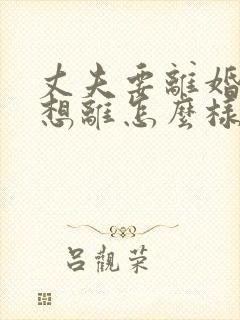 丈夫要離婚
想離怎麼樣
吕觀荣